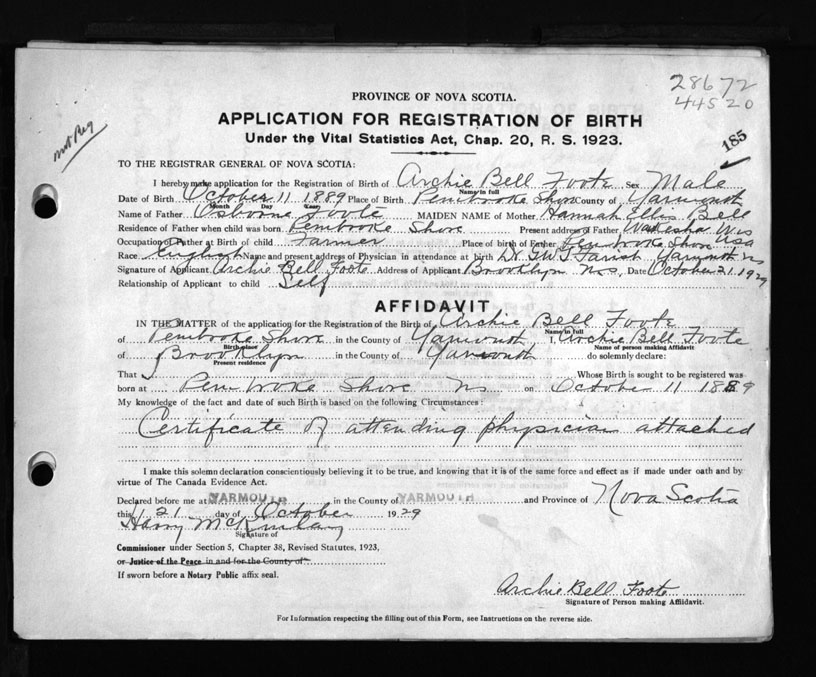 28672
44520
not Reg
185
PROVINCE OF NOVA SCOTIA.
APPLICATION FOR REGISTRATION OF BIRTH
Under the Vital Statistics Act, Chap. 20, R. S. 1923.
TO THE REGISTRAR GENERAL OF NOVA SCOTIA:
I hereby make application for the Registration of Birth of Archie Bell Foote Sex Male
Name in full
Date of Birth October 11 1889 Place of Birth Pembroke Shore County of Yarmouth
Month Day Year
Name of Father Osborne Foote MAIDEN NAME of Mother Hannah Ellis Bell
Residence of Father when child was born Pembroke Shore Present address of Father Waukesha Wis USA
Occupation of Father at Birth of child Farmer Place of birth of Father Pembroke Shore
Race English Name and present address of Physician in attendance at birth Dr G.W.T Farish Yarmouth NS
Signature of Applicant Archie Bell Foote Address of Applicant Brooklyn N.S. Date October 21, 1929
Relationship of Applicant to child Self
AFFIDAVIT
IN THE MATTER of the application for the Registration of the Birth of Archie Bell Foote
Name in full
of Pembroke Shore in the County of Yarmouth, I, Archie Bell Foote
Birth place Name of person making Affidavit
of Brooklyn in the County of Yarmouth do solemnly declare:
Present residence
That I Whose Birth is sought to be registered was
born at Pembroke Shore NS on October 11 1889
My knowledge of the fact and date of such Birth is based on the following Circumstances:
Certificate of attending physician attached
I make this solemn declaration conscientiously believing it to be true, and knowing that it is of the same force and effect as if made under oath and by
virtue of The Canada Evidence Act.
Declared before me at YARMOUTH in the County of YARMOUTH and Province of Nova Scotia
this 21 day of October 1929
Harry McKinlay
Signature of
Commissioner under Section 5, Chapter 38, Revised Statutes, 1923,
or Justice of the Peace in and for the County of
If sworn before a Notary Public affix seal.
Archie Bell Foote
Signature of Person making Affidavit.
For Information respecting the filling out of this Form, see Instructions on the reverse side.